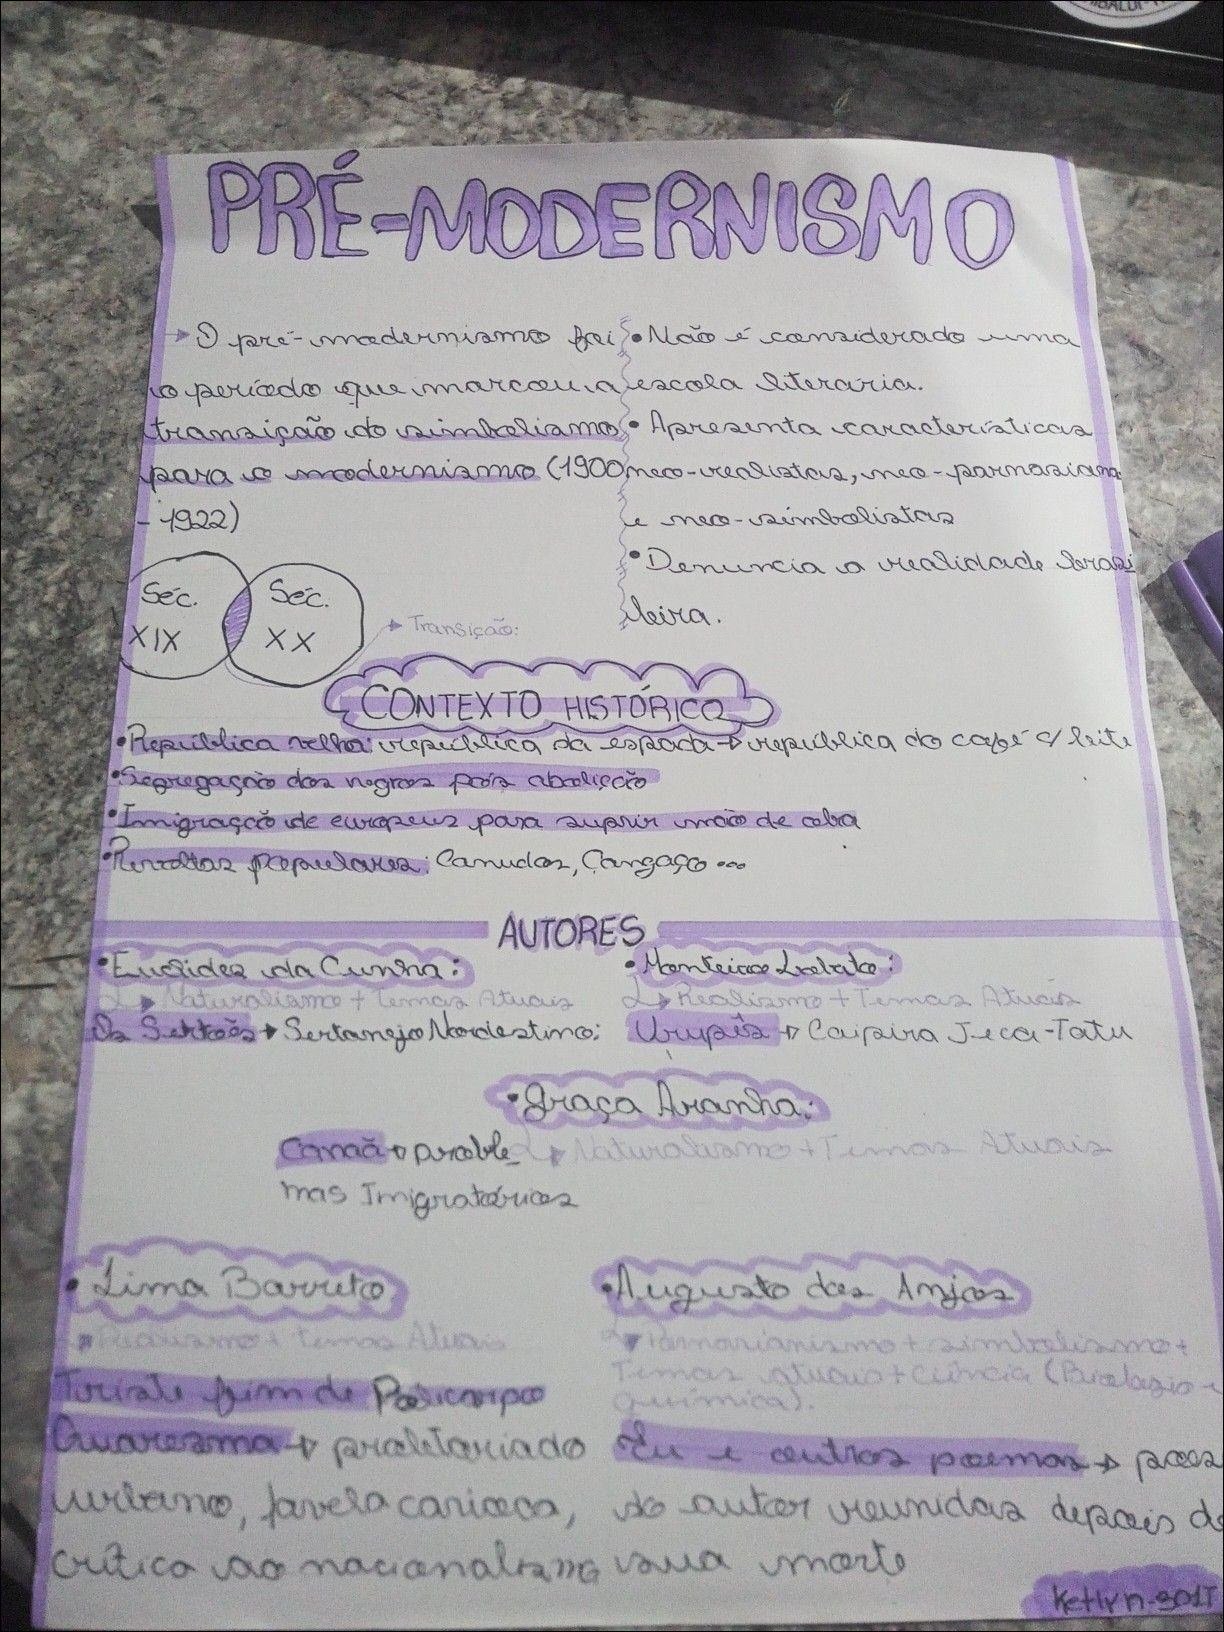 PRÉ-MODERNISMO
→ O pré-modernismo foi
o período que marcou a
transição do simbolismo
para o modernismo (1900
- 1922)
• Não é considerado uma
escola literária.
• Apresenta características
neo-realistas, neo-parnasiana
e neo-simbolistas
• Denuncia a realidade brasi
leira.
Séc. XIX
Séc. XX
→ Transição:
CONTEXTO HISTÓRICO
• República velha: república da espada → república do café c/ leite
• Segregação dos negros pós abolição
• Imigração de europeus para suprir mão de obra
• Revoltas populares: Canudos, Cangaço ...
AUTORES
• Euclides da Cunha:
→ Naturalismo + Temas Atuais
Os Sertões → Sertanejo Nordestino:
• Monteiro Lobato:
→ Realismo + Temas Atuais
Urupês → Caipira Jeca-Tatu
• Graça Aranha:
→ Naturalismo + Temas Atuais
Canaã → proble-
mas Imigratórios
• Lima Barreto
→ Realismo + Temas Atuais
Triste fim de Policarpo
Quaresma → proletariado
urbano, favela carioca,
crítica ao nacionalismo
• Augusto dos Anjos
→ Parnasianismo + simbolismo +
Temas atuais + Ciência (Biologia e
química).
Eu e outros poemas → poes
do autor reunidas depois de
sua morte
Ketlyn-301T